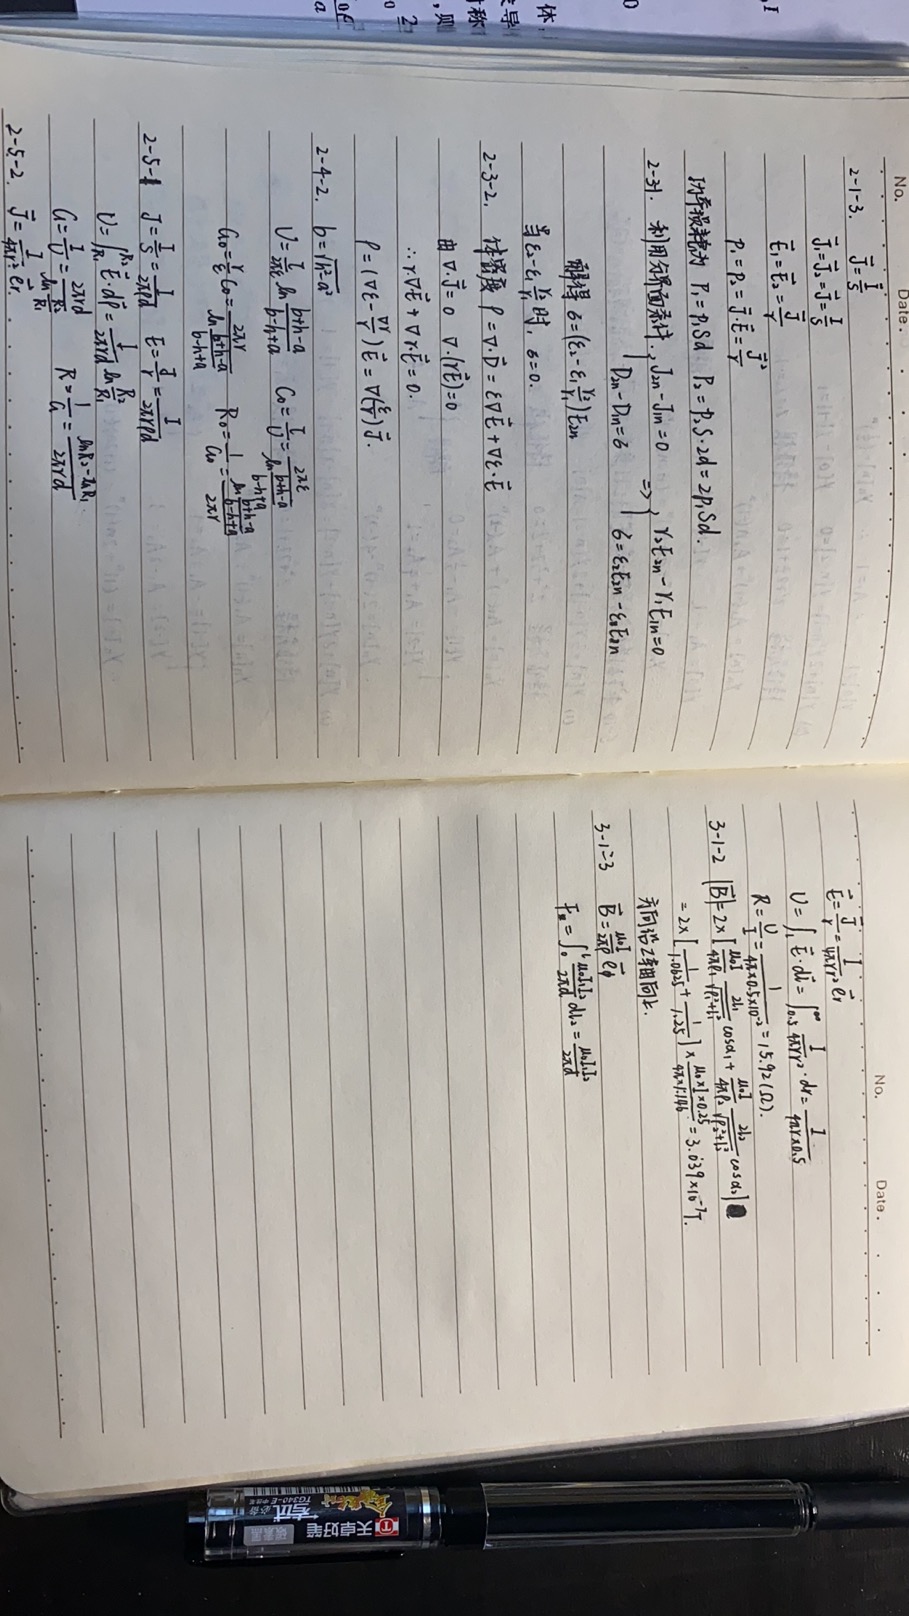 No.
Date.
2-1-3. J⃗=I/S
J⃗₁=J⃗₂=J⃗=I/S
E⃗₁=E⃗₂=J⃗/γ
p₁=p₂=J⃗·E⃗=J⃗²/γ
功率损耗为 P₁=p₁Sd. P₂=p₂S·2d=2p₁Sd.
2-3-1. 利用分界面条件, { J₂ₙ-J₁ₙ=0 ⇒ { γ₂E₂ₙ-γ₁E₁ₙ=0
D₂ₙ-D₁ₙ=б б=ε₂E₂ₙ-ε₁E₁ₙ
解得 б=(ε₂-ε₁γ₂/γ₁)E₂ₙ
当ε₂-ε₁γ₂/γ₁时, б=0.
2-3-2. ρ=∇·D⃗=ε∇E⃗+∇ε·E⃗
由∇·J⃗=0 ∇·(γE⃗)=0
∴γ∇E⃗+∇γ·E⃗=0.
ρ=(∇ε-ε∇γ/γ)E⃗=∇(ε/γ)J⃗.
2-4-2. b=√(h²-a²)
U=τ/2πε ln (b+h-a)/(b-h+a) C₀=τ/U=2πε/(ln (b+h-a)/(b-h+a))
G₀=γ/ε C₀=2πγ/(ln (b+h-a)/(b-h+a)) R₀=1/G₀=(ln (b+h-a)/(b-h+a))/2πγ
2-5-1 J=I/S=I/2πρd E=J/γ=I/2πγρd
U=∫R₁^R₂ E⃗·dl⃗=I/2πγd ln R₂/R₁
G=I/U=2πγd/(ln R₂/R₁) R=1/G=(lnR₂-lnR₁)/2πγd
2-5-2. J⃗=I/4πr² e⃗r.
No.
Date.
E⃗=J⃗/γ=I/4πγr² e⃗r
U=∫l E⃗·dl⃗=∫0.5^∞ I/4πγr²·dr=I/4πγ×0.5
R=U/I=1/4π×0.5×10⁻²=15.92(Ω).
3-1-2 |B⃗|=2×[μ₀I/4πρ₁ 2l₁/√(ρ₁²+l₁²) cosα₁+μ₀I/4πρ₂ 2l₂/√(ρ₂²+l₂²) cosα₂]
=2×[1/1.0625+1/1.25]×μ₀×1×0.25/4π×1.146=3.039×10⁻⁷T.
方向沿z轴向上.
3-1-3 B⃗=μ₀I/2πρ e⃗φ
=∫₀¹ μ₀I₁I₂/2πd dl₂=μ₀I₁I₂/2πd
天卓好笔
TG340-E
考试
碳素黑